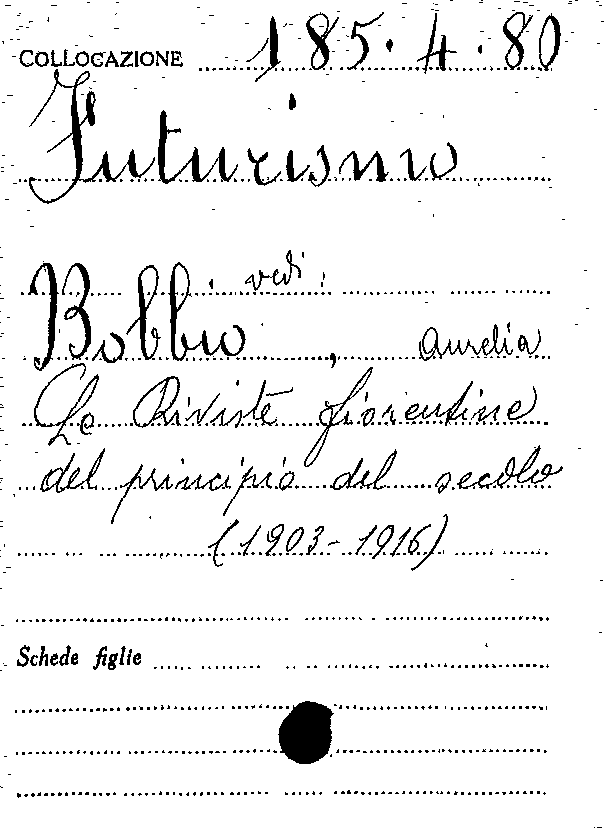 COLLOCAZIONE 185.4.80
Futurismo
vedi:
Bobbio, Aurelia
Le Riviste fiorentine
del principio del secolo
(1903-1916)
Schede figlie